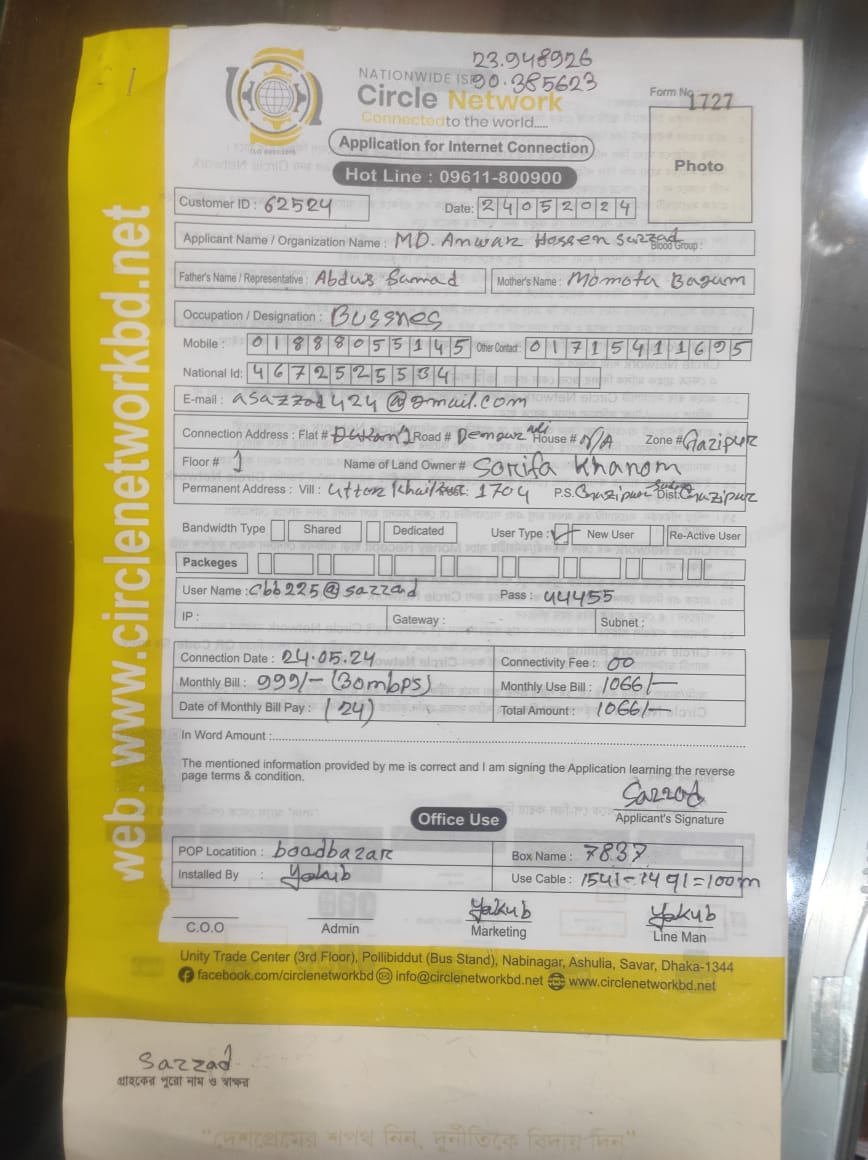 23.948926
NATIONWIDE ISP 90.385623
Circle Network
Connected to the world.....
Form No 1727
Application for Internet Connection
Photo
Hot Line : 09611-800900
Customer ID : 62524
Date: 24052024
Applicant Name / Organization Name : MD. Anwar Hossen Sazzad Blood Group :
Father's Name / Representative : Abdus Samad Mother's Name : Momota Bagum
Occupation / Designation : Bussnes
Mobile : 01888055145 Other Contact : 01715411695
National Id: 4672525534
E-mail : asazzad424@gmail.com
Connection Address : Flat # Dukan 1 Road # House # N/A Zone # Gazipur
Floor # 1 Name of Land Owner # Sorifa Khanom
Permanent Address : Vill : Uttor Khail 1704 P.S. Gazipur Sadar Dist: Gazipur
Bandwidth Type Shared Dedicated User Type : New User Re-Active User
Packeges
User Name : cbb225@sazzad Pass : 44455
IP : Gateway : Subnet :
Connection Date : 24.05.24 Connectivity Fee : 00
Monthly Bill : 999/- (30mbps) Monthly Use Bill : 1066/-
Date of Monthly Bill Pay : (24) Total Amount : 1066/-
In Word Amount :
The mentioned information provided by me is correct and I am signing the Application learning the reverse
page terms & condition.
Sazzad
Applicant's Signature
Office Use
POP Locatition : boadbazar Box Name : 7837
Installed By : Yakub Use Cable : 1541-1491=100m
Yakub Yakub
C.O.O Admin Marketing Line Man
Unity Trade Center (3rd Floor), Pollibiddut (Bus Stand), Nabinagar, Ashulia, Savar, Dhaka-1344
facebook.com/circlenetworkbd info@circlenetworkbd.net www.circlenetworkbd.net
web. www.circlenetworkbd.net
Sazzad
গ্রাহকের পুরো নাম ও স্বাক্ষর
"দেশপ্রেমের শপথ নিন, দুর্নীতিকে বিদায় দিন"